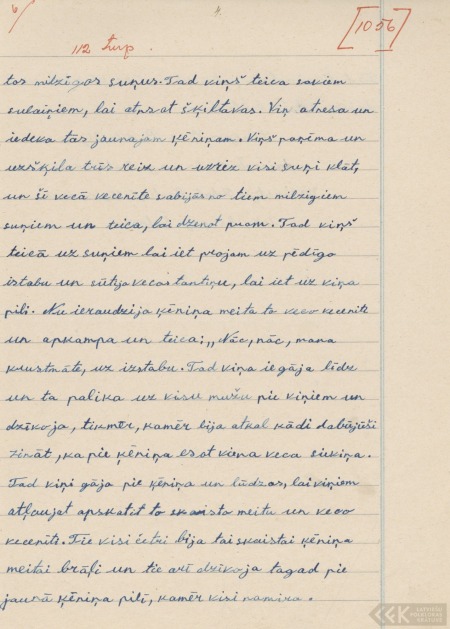 6/
4.
[1056]
112 turp.
tos milzīgos suņus. Tad viņš teica saviem
sulaiņiem, lai atnesot šķiltavas. Viņ atnesa un
iedeva tās jaunajam ķēniņam. Viņš paņēma un
uzšķīla trīs reiz un uzreiz visi suņi klāt,
un šī vecā vecenīte sabijās no tiem milzīgiem
suņiem un teica, lai dzenot prom. Tad viņš
teicā uz suņiem lai iet projam uz pēdīgo
istabu un sūtīja vecas tantiņu, lai iet uz viņa
pili. Nu ieraudzīja ķēniņa meita to veco vecenīti
un apkampa un teica: „Nāc, nāc, mana
krustmāte, uz izstabu. Tad viņa iegāja līdz
un ta palika uz visu mužu pie viņiem un
dzīvoja, timmēr, kamēr bija atkal kādi dabūjuši
zināt, ka pie ķēniņa esat viena veca sieviņa.
Tad viņi gāja pie ķēniņa un lūdzas, lai viņiem
atļaujat apskatīt to skaisto meitu un veco
vecenīti. Tie visi četri bija tai skaistai ķēniņa
meitai brāļi un tie arī dzīvoja tagad pie
jaunā ķēniņa pilī, kamēr visi nomira.
LATVIEŠU
FOLKLORAS
KRĀTUVE